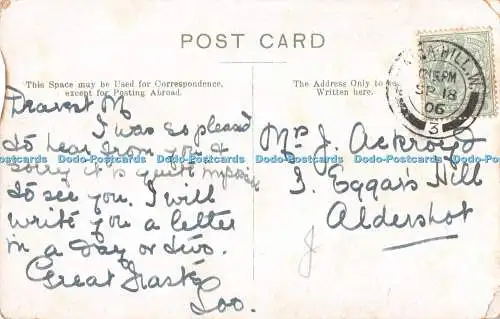 POST CARD
This Space may be Used for Correspondence,
except for Posting Abroad.
The Address Only to be
Written here.
HILL. W.
PM
SP 18
06
3
Dearest M
I was so pleased
to hear from you &
sorry it is quite impossible
to see you. I will
write you a letter
in a day or two.
Great Haste
Loo.
Mr J. Ackroyd
3. Eggar's Hill
Aldershot
Dodo-Postcards Dodo-Postcards Dodo-Postcards Dodo-Postcards Dodo-Postcards Dodo-Postcards